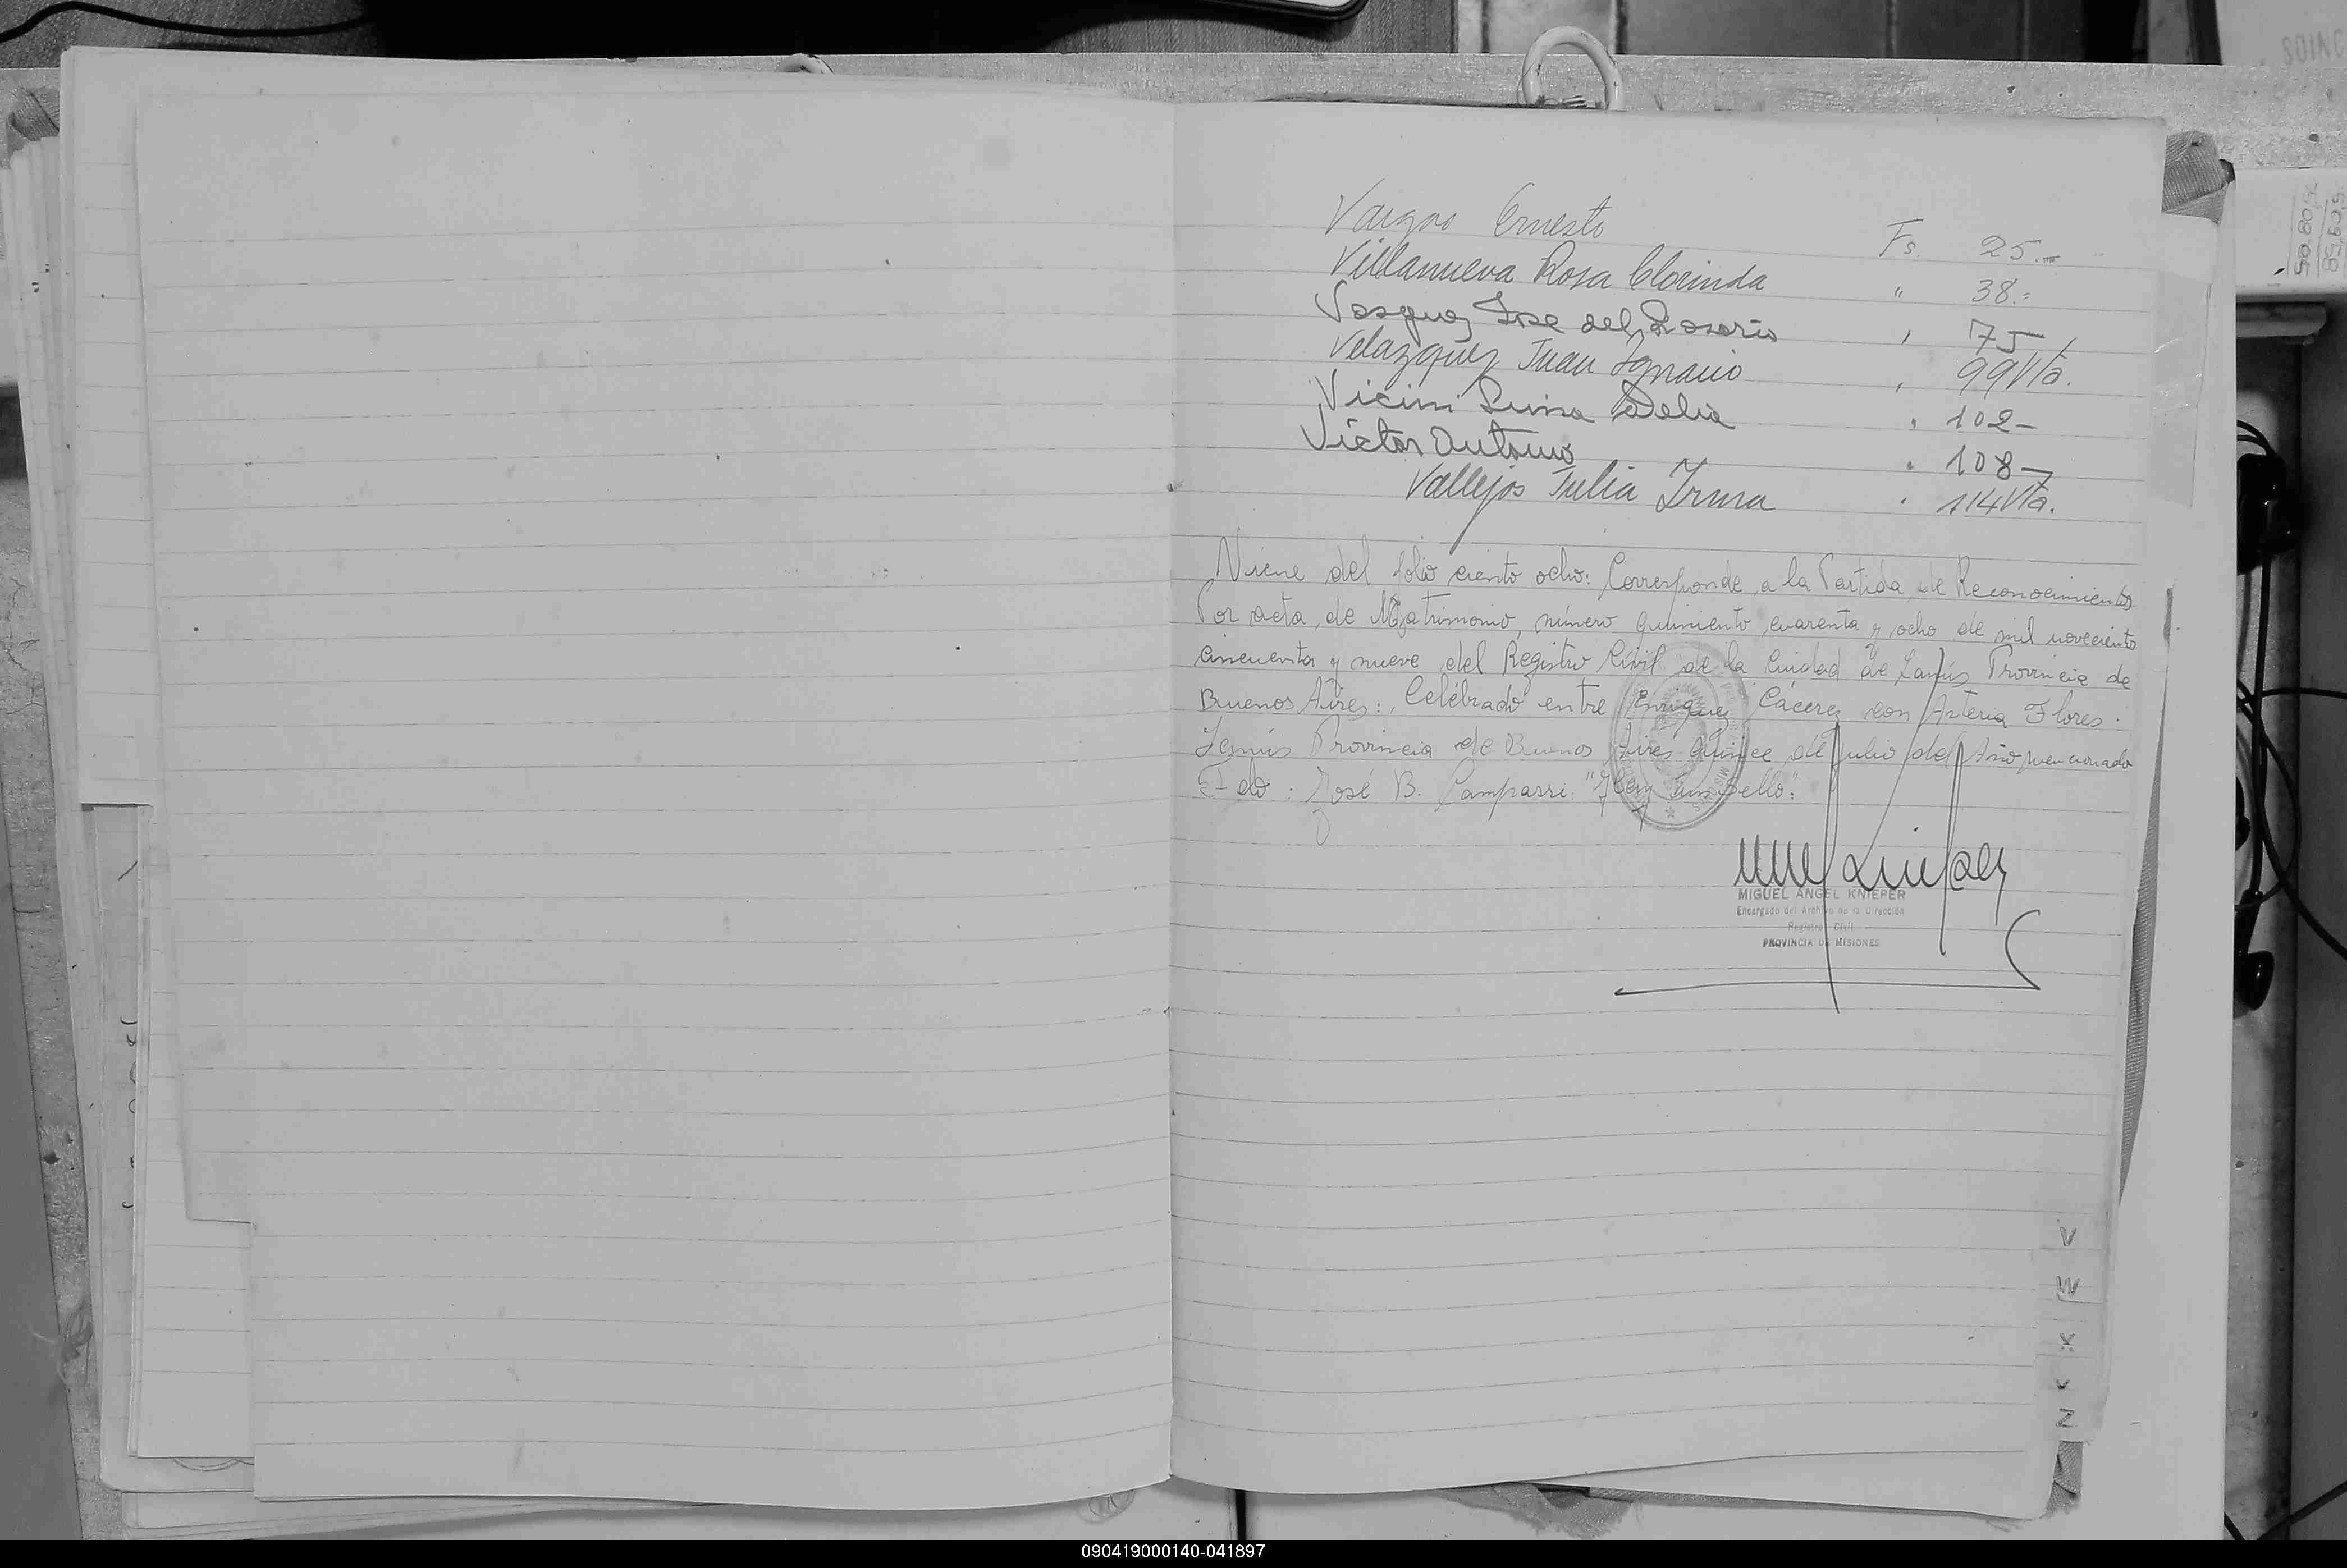 Vargas Ernesto Fs. 25.-
Villanueva Rosa Clorinda " 38.=
Vasquez Jose del Rosario " 75,
Velazquez Juan Ignacio " 99 Vta.
Vicini Luisa Delia " 102-
Victor Antonio " 108-
Vallejos Julia Irma " 114 Vta.
Viene del folio ciento ocho: Corresponde a la Partida de Reconocimientos
Por acta, de Matrimonio, número quiniento cuarenta y ocho de mil noveciento
cincuenta y nueve del Registro Civil de la Ciudad de Lanús Provincia de
Buenos Aires:, Celebrado entre Enriquez Cácerez con Asteria Flores.
Lanús Provincia de Buenos Aires Quince de Julio del Año mencionado
Fdo: José B. Camparri: "Hay un Sello":
MIGUEL ANGEL KNIEPER
Encargado del Archivo de la Dirección
Registro Civil
PROVINCIA DE MISIONES
V
W
X
Z
090419000140-041897